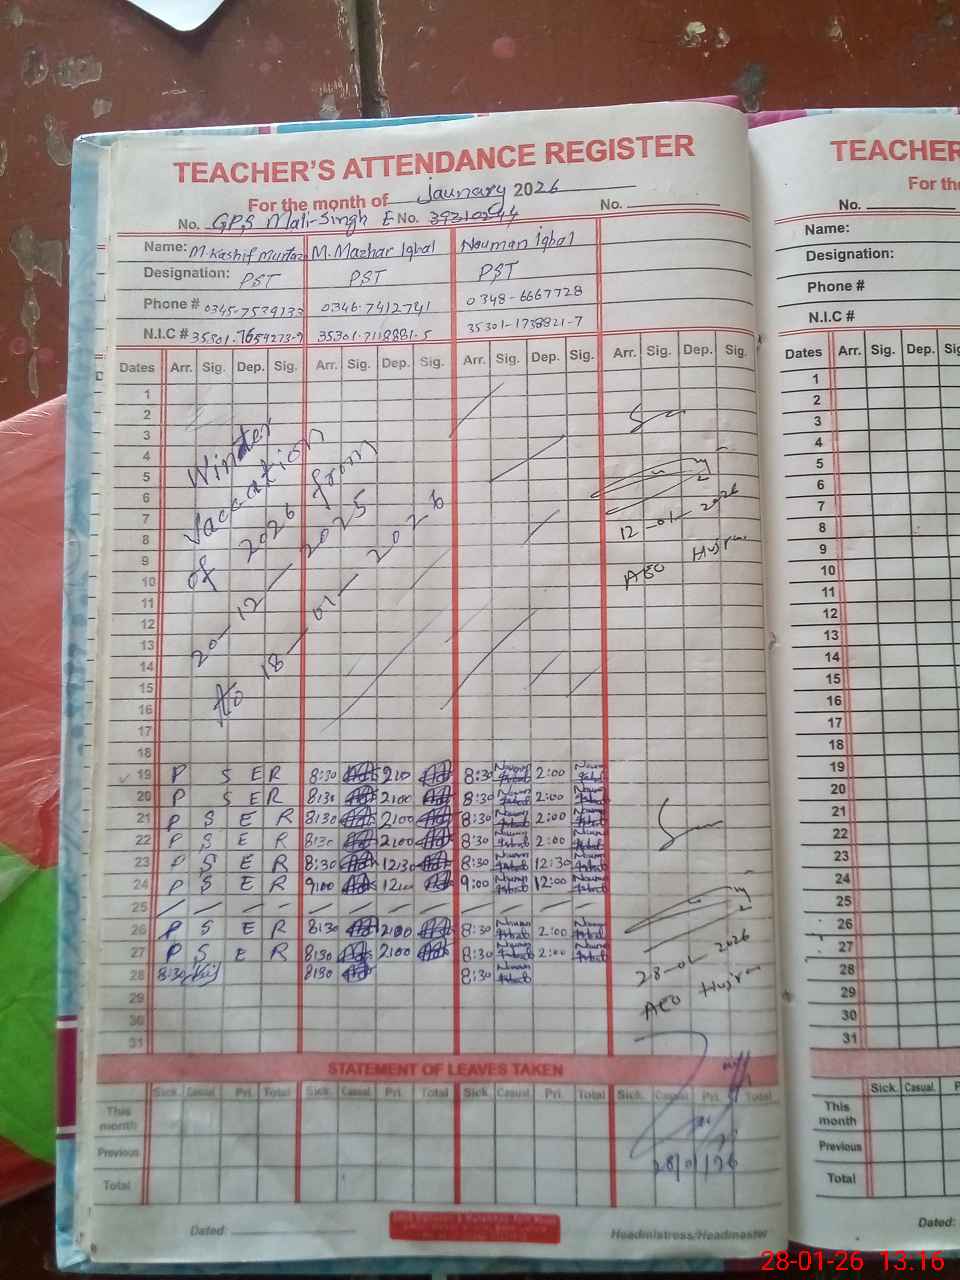 TEACHER'S ATTENDANCE REGISTER
For the month of Jaunary 2026
No. GPS Mali-Singh E No. 39310244 No.
Name: M.Kashif Murtaza M. Mazhar Iqbal Nouman Iqbal
Designation: PST PST PST
Phone # 0345-7539133 0346-7412741 0348-6667728
N.I.C # 35301-7659273-9 35301-7118881-5 35301-1738821-7
Dates Arr. Sig. Dep. Sig. Arr. Sig. Dep. Sig. Arr. Sig. Dep. Sig. Arr. Sig. Dep. Sig.
1
2
3
4
5
6
7
8
9
10
11
12
13
14
15
16
17
18
Winter
Vaccation
of 2026 from
20-12-2025
to 18-01-2026
12-01-2026
AEO Hujra
19 P S E R 8:30 2:00 8:30 Nouman Iqbal 2:00 Nouman Iqbal
20 P S E R 8:30 2:00 8:30 Nouman Iqbal 2:00 Nouman Iqbal
21 P S E R 8:30 2:00 8:30 Nouman Iqbal 2:00 Nouman Iqbal
22 P S E R 8:30 2:00 8:30 Nouman Iqbal 2:00 Nouman Iqbal
23 P S E R 8:30 12:30 8:30 Nouman Iqbal 12:30 Nouman Iqbal
24 P S E R 9:00 12:00 9:00 Nouman Iqbal 12:00 Nouman Iqbal
25
26 P S E R 8:30 2:00 8:30 Nouman Iqbal 2:00 Nouman Iqbal
27 P S E R 8:30 2:00 8:30 Nouman Iqbal 2:00 Nouman Iqbal
28 8:30 8:30 8:30 Nouman Iqbal
29
30
31
28-01-2026
AEO Hujra
STATEMENT OF LEAVES TAKEN
Sick. Casual. Pri. Total Sick. Casual. Pri. Total Sick. Casual. Pri. Total Sick. Casual. Pri. Total
This month
Previous
Total
28/01/26
Dated:
Headmistress/Headmaste
TEACHER
For the
No.
Name:
Designation:
Phone #
N.I.C #
Dates Arr. Sig. Dep. Sig
1
2
3
4
5
6
7
8
9
10
11
12
13
14
15
16
17
18
19
20
21
22
23
24
25
26
27
28
29
30
31
Sick. Casual. P
This month
Previous
Total
Dated:
28-01-26 13:16